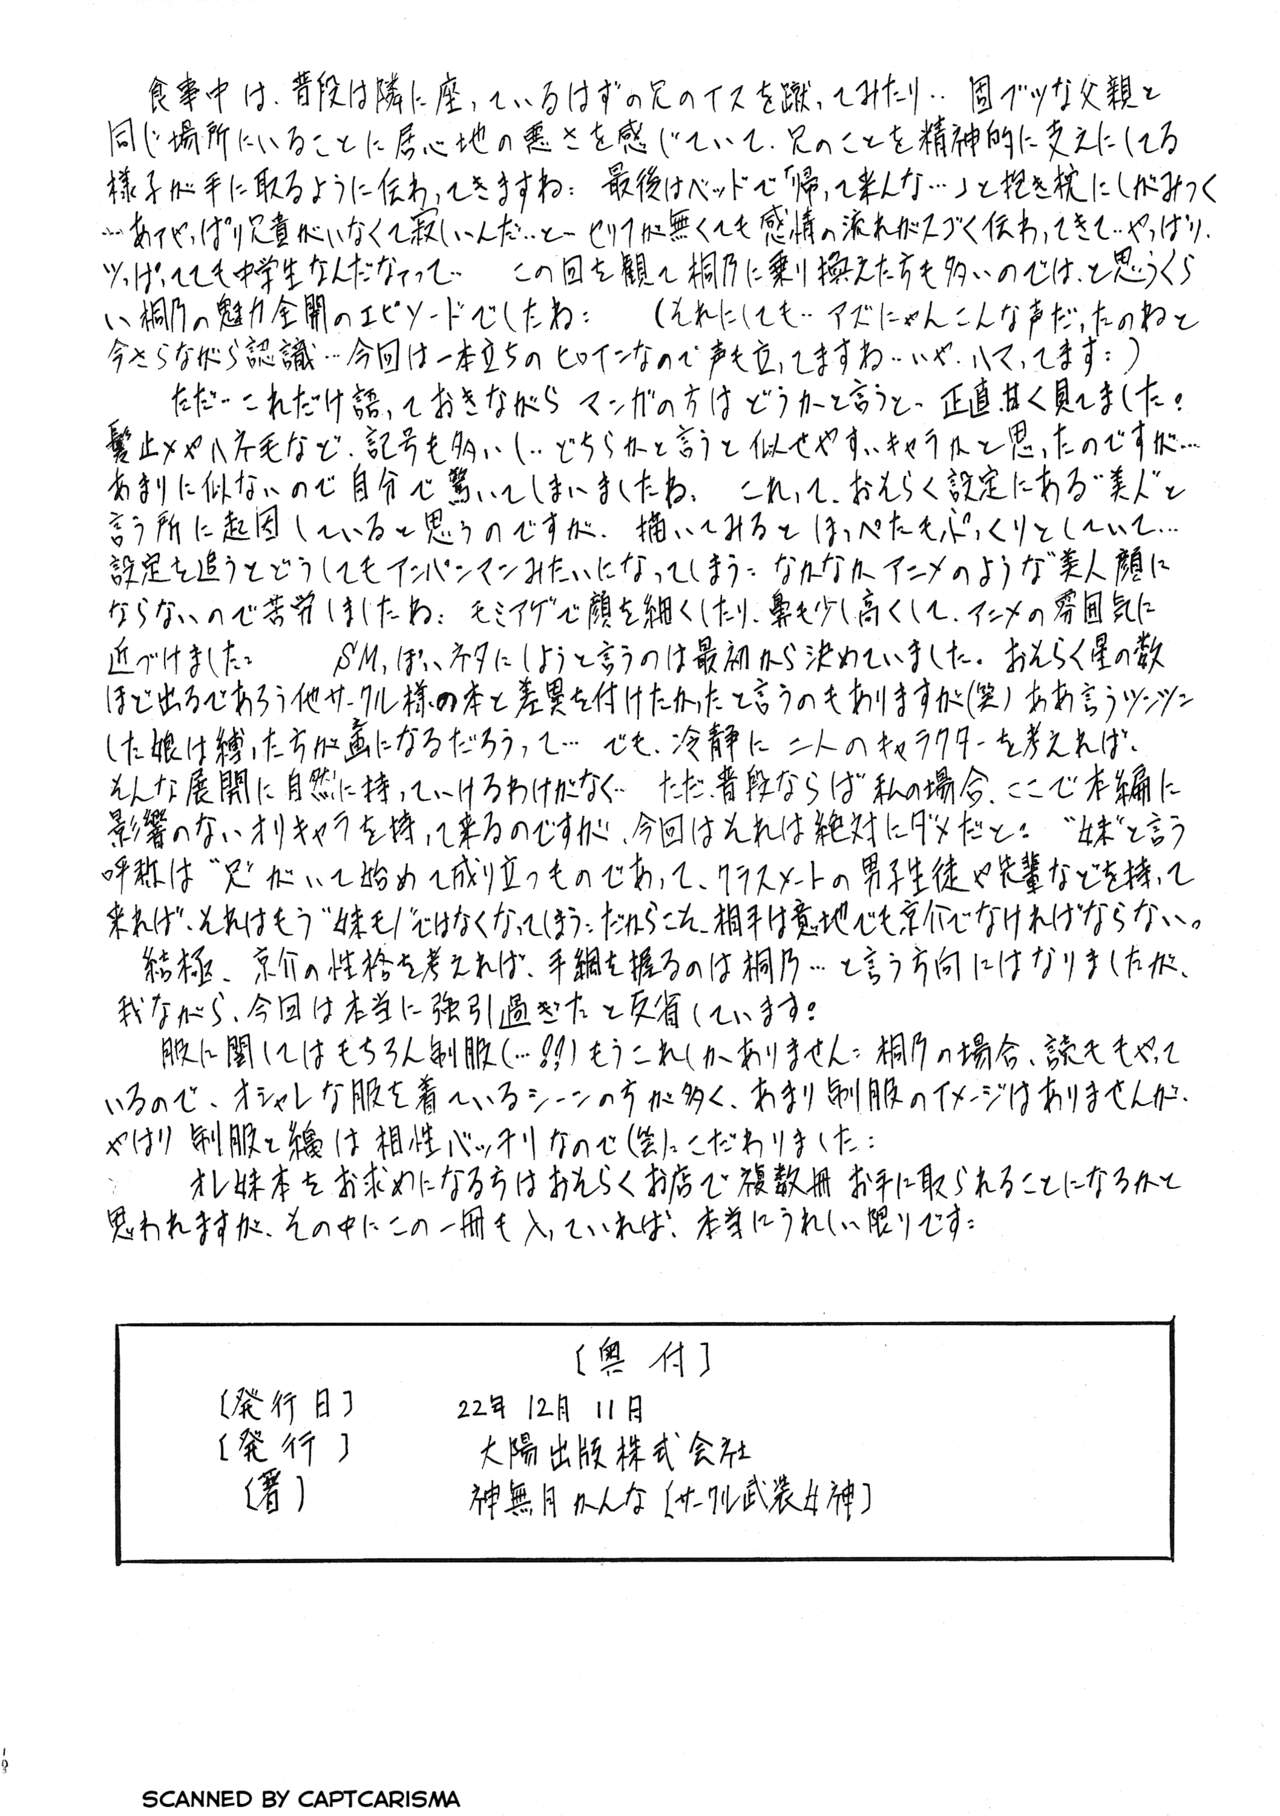 食事中は、普段は隣に座っているはずの兄のイスを蹴ってみたり‥ 固ブツな父親と
同じ場所にいることに居心地の悪さを感じていて、兄のことを精神的に支えにしてる
様子が手に取るように伝わってきますね: 最後はベッドで「帰って来んな…」と抱き枕にしがみつく
…あァやっぱり兄貴がいなくて寂しいんだ‥と― セリフが無くても感情の流れがスゴく伝わってきて‥やっぱり、
ツっぱってても中学生なんだなァって‥ この回を観て桐乃に乗り換えた方も多いのでは、と思うくら
い桐乃の魅力全開のエピソードでしたね: (それにしても‥アズにゃんこんな声だったのねと
今さらながら認識…今回は一本立ちのヒロインなので声も立ってますね‥いや、ハマってます:)
ただ‥これだけ語っておきながら マンガの方はどうかと言うと、正直甘く見てました。
髪止メやハネ毛など、記号も多いし‥どちらかと言うと似せやすいキャラかと思ったのですが…
あまりに似ないので自分で驚いてしまいましたね、 これって、おそらく設定にある"美人"と
言う所に起因していると思うのですが、描いてみるとほっぺたもぷっくりとしていて…
設定を追うとどうしてもアンパンマンみたいになってしまう: なかなかアニメのような"美人顔に
ならないので苦労しましたね: モミアゲで顔を細くしたり、鼻も少し高くして、アニメの雰囲気に
近づけました: SMっぽいネタにしようと言うのは最初から決めていました。おそらく星の数
ほど出るであろう他サークル様の本と差異を付けたかったと言うのもありますが(笑)ああ言うツンツン
した娘は縛った方が画になるだろうって… でも、冷静に二人のキャラクターを考えれば、
そんな展開に自然に持っていけるわけがなく‥ ただ、普段ならば私の場合、ここで本編に
影響のないオリキャラを持って来るのですが、今回はそれは絶対にダメだと: "妹"と言う
呼称は"兄"がいて始めて成り立つものであって、クラスメートの男子生徒や先輩などを持って
来れば、それはもう"妹モノ"ではなくなってしまう: だからこそ、相手は意地でも京介でなければならない。
結極、京介の性格を考えれば、手綱を握るのは桐乃…と言う方向にはなりましたが、
我ながら、今回は本当に強引過ぎたと反省しています:
服に関してはもちろん制服(…!!)もうこれしかありません: 桐乃の場合、読モもやって
いるので、オシャレな服を着ているシーンの方が多く、あまり制服のイメージはありませんが、
やはり制服と縄は相性バッチリなので(笑)こだわりました:
オレ妹本をお求めになる方はおそらくお店で複数冊お手に取られることになるかと
思われますが、その中にこの一冊も入っていれば、本当にうれしい限りです:
[奥付]
[発行日] 22年12月11日
[発行] 大陽出版株式会社
[著] 神無月かんな[サークル武装女神]
SCANNED BY CAPTCARISMA